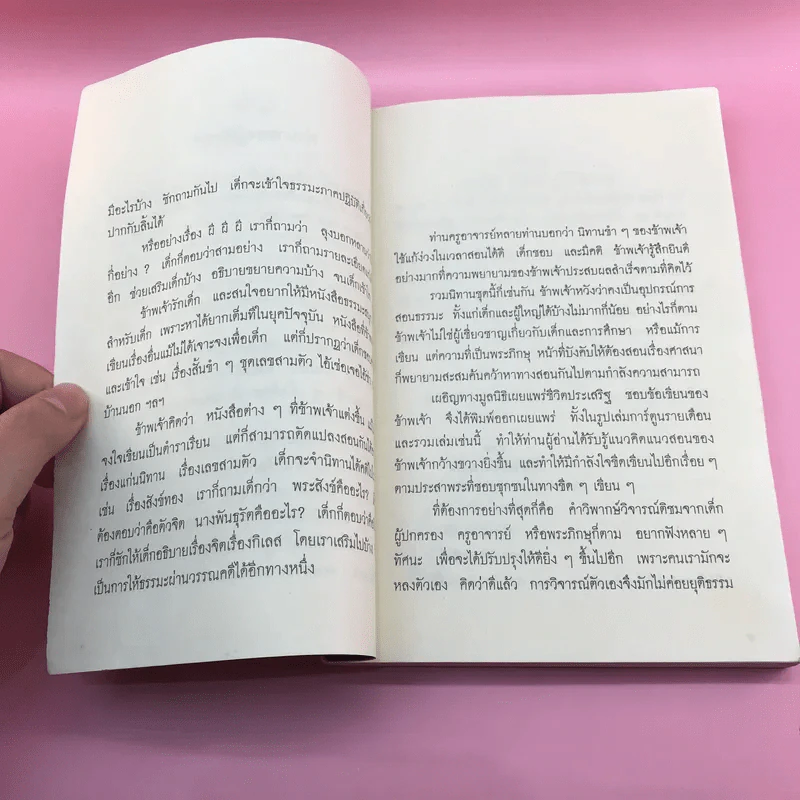 มีอะไรบ้าง ซักถามกันไป เด็กจะเข้าใจธรรมะภาคปฏิบัติ
ปากกับลิ้นได้
หรืออย่างเรื่อง ฝี ฝี ฝี เราก็ถามว่า ลุงบอกหลาน
กี่อย่าง ? เด็กก็ตอบว่าสามอย่าง เราก็ถามรายละเอียด
อีก ช่วยเสริมเด็กบ้าง อธิบายขยายความบ้าง จนเด็กเข้าใจ
ข้าพเจ้ารักเด็ก และสนใจอยากให้มีหนังสือธรรมะ
สำหรับเด็ก เพราะหาได้ยากเต็มที่ในยุคปัจจุบัน หนังสือที่ข้าพเจ้า
เขียนเรื่องอื่นแม้ไม่ได้เจาะจงเพื่อเด็ก แต่ก็ปรากฏว่าเด็ก
และเข้าใจ เช่น เรื่องสั้นขำ ๆ ชุดเลขสามตัว ไอ้เซ่อเจอไอ้
บ้านนอก ฯลฯ
ข้าพเจ้าคิดว่า หนังสือต่าง ๆ ที่ข้าพเจ้าแต่งขึ้น
จงใจเขียนเป็นตำราเรียน แต่ก็สามารถดัดแปลงสอนกันได้
เรื่องแก่นนิทาน เรื่องเลขสามตัว เด็กจะจำนิทานได้
เช่น เรื่องสังข์ทอง เราก็ถามเด็กว่า พระสังข์คืออะไร?
ต้องตอบว่าคือตัวจิต นางพันธุรัตคืออะไร? เด็กก็ตอบว่า
เราก็ซักให้เด็กอธิบายเรื่องจิตเรื่องกิเลส โดยเราเสริมไปบ้าง
เป็นการให้ธรรมะผ่านวรรณคดีได้อีกทางหนึ่ง
ท่านครูอาจารย์หลายท่านบอกว่า นิทานขำ ๆ ของข้าพเจ้า
ใช้แก้ง่วงในเวลาสอนได้ดี เด็กชอบ และมีคติ ข้าพเจ้ารู้สึกยินดี
อย่างมากที่ความพยายามของข้าพเจ้าประสบผลสำเร็จตามที่คิดไว้
รวมนิทานชุดนี้ก็เช่นกัน ข้าพเจ้าหวังว่าคงเป็นอุปกรณ์การ
สอนธรรมะ ทั้งแก่เด็กและผู้ใหญ่ได้บ้างไม่มากก็น้อย อย่างไรก็ตาม
ข้าพเจ้าไม่ใช่ผู้เชี่ยวชาญเกี่ยวกับเด็กและการศึกษา หรือแม้การ
เขียน แต่ความที่เป็นพระภิกษุ หน้าที่บังคับให้ต้องสอนเรื่องศาสนา
ก็พยายามสะสมค้นคว้าหาทางสอนกันไปตามกำลังความสามารถ
เผอิญทางมูลนิธิเผยแพร่ชีวิตประเสริฐ ชอบข้อเขียนของ
ข้าพเจ้า จึงได้พิมพ์ออกเผยแพร่ ทั้งในรูปเล่มการ์ตูนรายเดือน
และรวมเล่มเช่นนี้ ทำให้ท่านผู้อ่านได้รับรู้แนวคิดแนวสอนของ
ข้าพเจ้ากว้างขวางยิ่งขึ้น และทำให้มีกำลังใจขีดเขียนไปอีกเรื่อย ๆ
ตามประสาพระที่ชอบซุกซนในทางขีด ๆ เขียน ๆ
ที่ต้องการอย่างที่สุดก็คือ คำวิพากษ์วิจารณ์ติชมจากเด็ก
ผู้ปกครอง ครูอาจารย์ หรือพระภิกษุก็ตาม อยากฟังหลาย ๆ
ทัศนะ เพื่อจะได้ปรับปรุงให้ดียิ่ง ๆ ขึ้นไปอีก เพราะคนเรามักจะ
หลงตัวเอง คิดว่าดีแล้ว การวิจารณ์ตัวเองจึงมักไม่ค่อยยุติธรรม